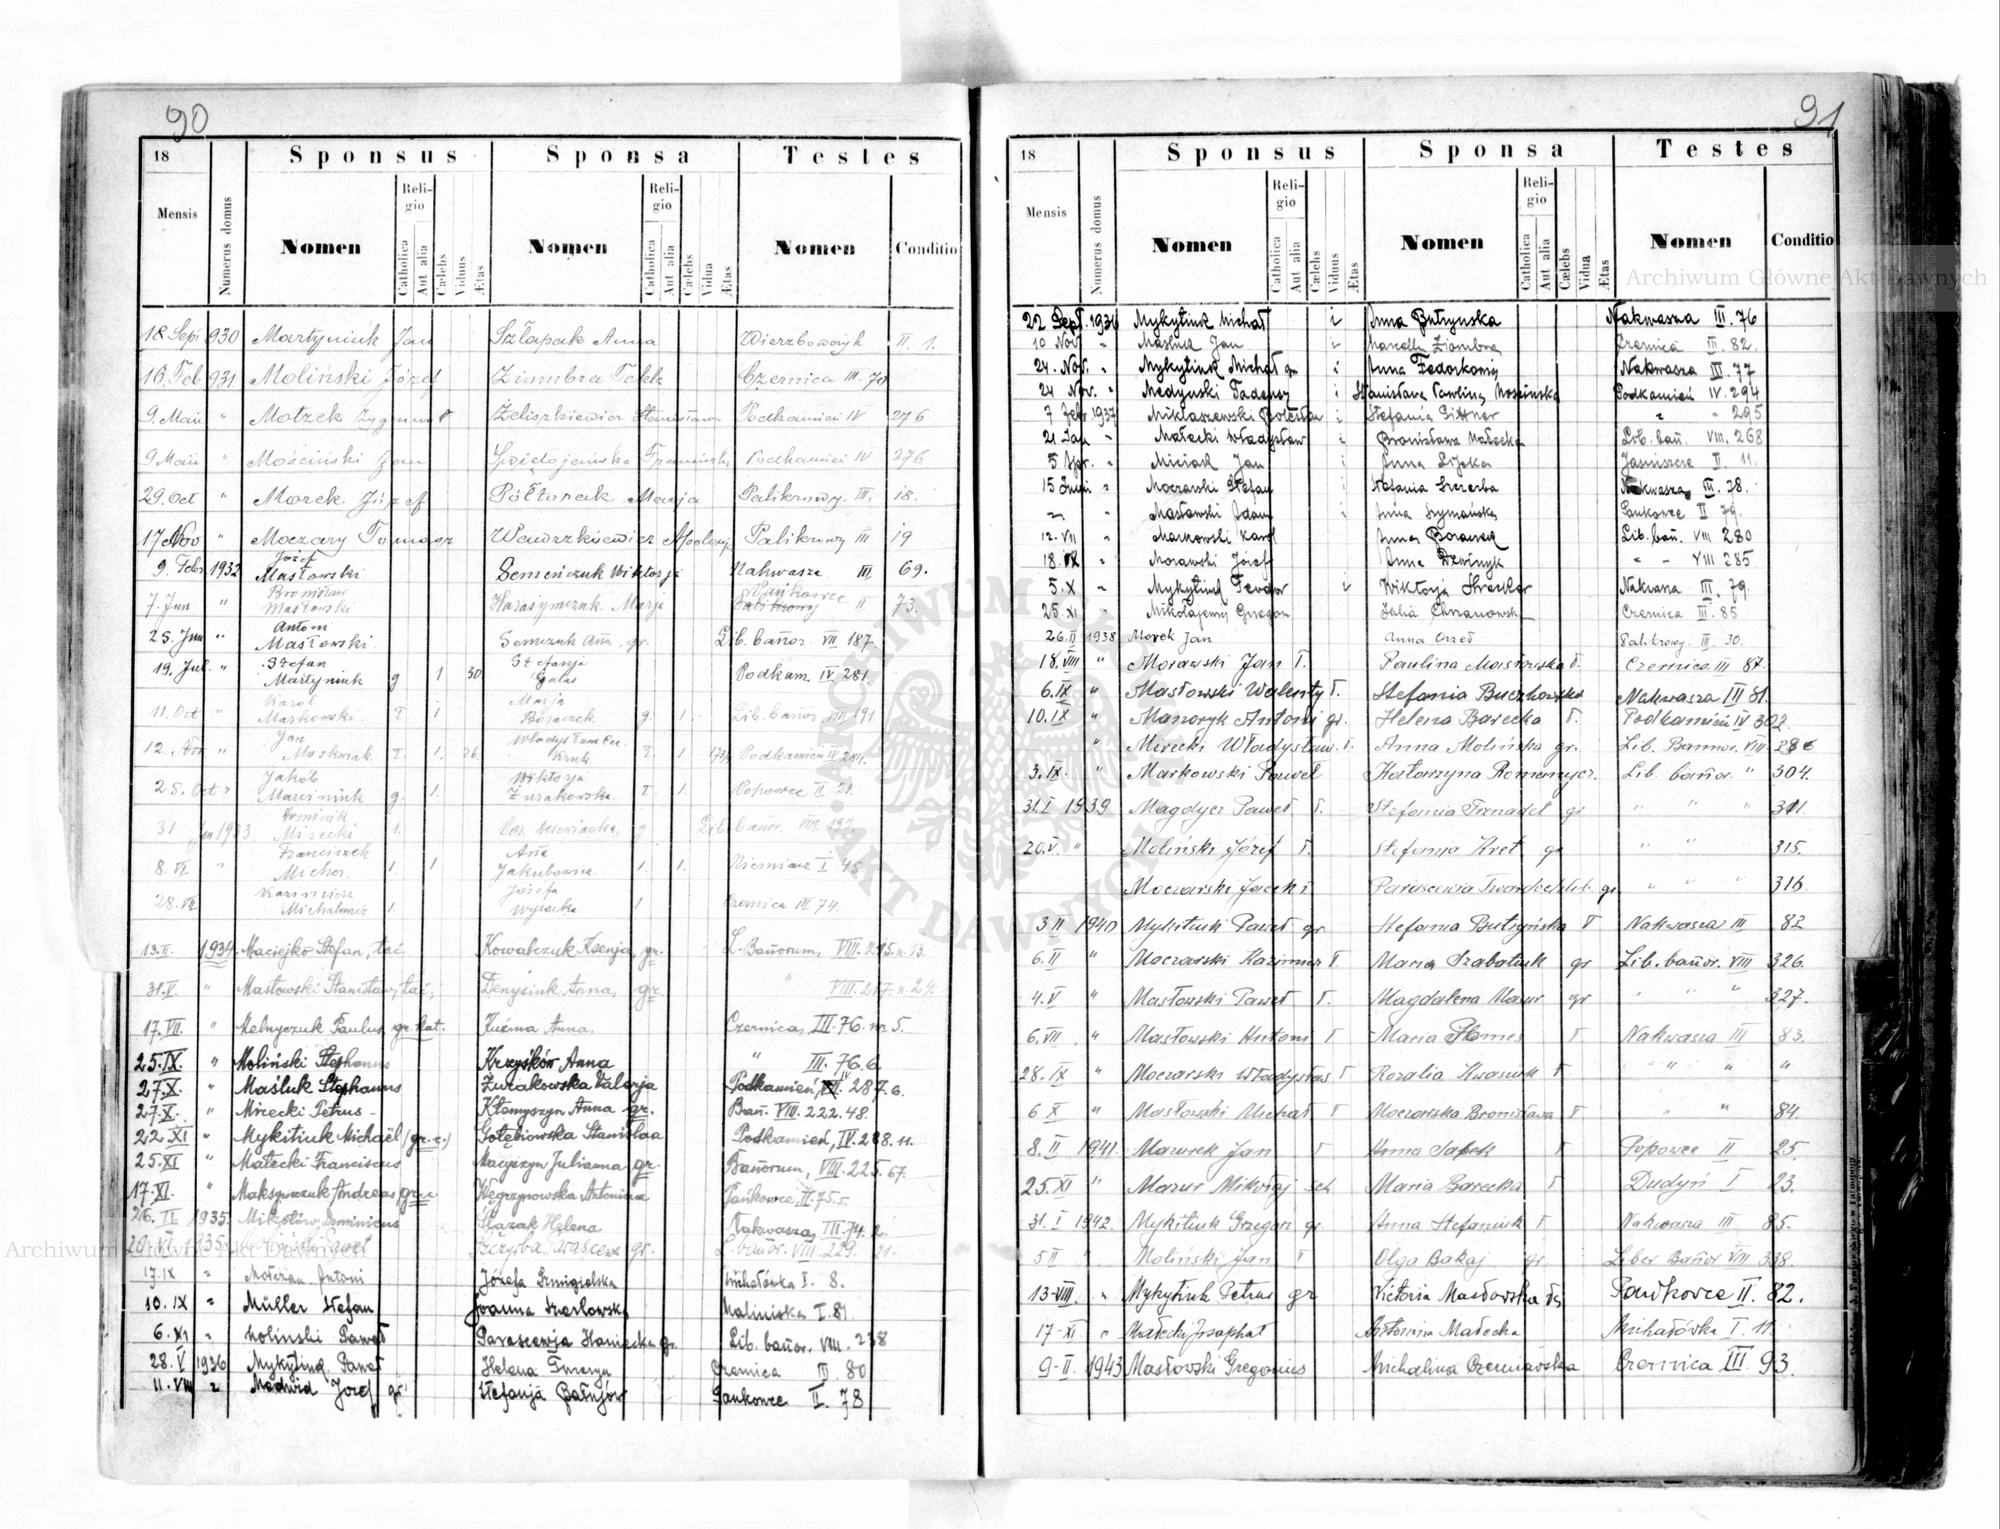 90
18 Sponsus Sponsa Testes
Mensis Numerus domus Nomen Religio Catholica Aut alia Cælebs Viduus Ætas Nomen Religio Catholica Aut alia Cælebs Vidua Ætas Nomen Conditio
18 Sept 930 Martyniuk Jan Szłapak Anna Wierzbowczyk II. 1.
16. Feb 931 Moliński Józef Ziombra Tekla Czernica III. 70
9. Maii " Motzek Zygmunt Żeliszkiewicz Stanisława Podkamień IV 276
9 Maii " Mościński Jan Świętojańska Franciszka Podkamień IV 276
29. Oct " Morek Józef Półtorak Marja Palikrowy III. 18.
17 Nov " Moczary Tomasz Wawrzkiewicz Palikrowy III 19
9. Febr. 1932 Józef Masłowski Semeńczuk Wiktorja Nakwasza III. 69.
7. Jun " Bronisław Masłowski Harasymczuk Marja Pańkowce II 73.
25. Jun " Antoni Masłowski Semczuk Ańa gr. Lib. bańor. VII. 187.
19. Jul. " Stefan Martyniuk g 1 30 Stefanja Galas Podkam. IV 281.
11. Oct " Karol Markowski r. 1 Marja g. 1. Lib. bańor VIII 191.
12. Nov " Jan r. 1. 26. r. 1 Podkamień IV 281.
25. Oct " Jakób Marciniuk g. 1. Wiktorja Żurakowska r. 1. Popowce II 21.
31 Jan 1933. Dominik Mirecki g Lib. bańor. VIII
8. VI Franciszek Michor. 1. 1 Ańa Jakubowicz 1. 1. I 45.
28. VII Kazimierz Michalewicz 1. Józefa Wysocka 1 Czernica III 74.
13. II. 1934. Maciejko Stefan, łać Kowalczuk Ksenja, gr. L. Bańorum, VIII. 215. n. 13.
31. V. " Masłowski Stanisław, łać, Denysiuk Anna, gr. " VIII. 217. n. 24.
17. VII. " Melnyczuk Paulus, gr. kat. Kuźma Anna. Czernica, III. 76. nr. 5.
25. IX. " Moliński Stephanus Krzyśków Anna " III. 76. 6.
27. X. " Maśluk Stephanus Żurakowska Valerja Podkamień, IV. 287. 6.
27. X. " Mirecki Petrus - Kłomyszyn Anna gr. Bań. VIII. 222. 48.
22. XI " Mykitiuk Michaël (gr. c.) Gołębiowska Stanisłaa Podkamień, IV. 288. 11.
25. XI " Małecki Franciscus Maciszyn Julianna gr. Bańorum, VIII. 225. 67.
17. XI. " Maksymczuk Andreas gr. c. Węgrzynowska Antonina Pańkowce, II. 75. 5.
26. II 1935. Dominicus Ślazak Helena Nakwasza, III. 74. 2.
20. VI 1935 Szczyrba Parascewa gr. L. bańor. VIII. 229. 21.
17. IX " Antoni Józefa Śmigielska Michałówka I. 8.
10. IX " Müller Stefan Joanna Maliniska I. 81
6. XI " Moliński Paweł Parascewja gr. Lib. bańor. VIII. 238
28. V 1936 Mykytiuk Paweł Helena Czernica III 80
11. VIII " Medwid Jozef gr. Stefanja Bałujów Pankowce II. 78
91
18 Sponsus Sponsa Testes
Mensis Numerus domus Nomen Religio Catholica Aut alia Cælebs Viduus Ætas Nomen Religio Catholica Aut alia Cælebs Vidua Ætas Nomen Conditio
22 Sept. 1936 Mykytiuk Michał i Anna Butyńska Nakwasza III. 76
10 Nov. " Maśluk Jan i Marcella Ziombra Czernica III. 82.
24. Nov. " Mykytiuk Michał gr i Anna Fedorkowicz Nakwasza III. 77
24 Nov. " Medyński Tadeusz i Stanisława Paulina Mościńska Podkamień IV. 294
7 Febr 1937 Miklaszewski Bolesław i Stefania Gittner " " 295
21 Jan " Małecki Władysław i Bronisława Małecka Lib. bań. VIII. 268
5 Apr. " Misiak Jan i Anna Jaśniszcze II. 11.
15 Junii " Moczarski Stefan i Stefania Szczerba Nakwasza III. 78.
" Masłowski Adam i Anna Szymańska Pankowce II 79.
12. VII " Markowski Karol Anna Lib. bań. VIII 280
18. IX " Morawski Józef Anna " " VIII 285
5. X " Mykytiuk Teodor i Wiktorja Nakwasza III. 79.
25. XI " Mikołajewicz Julia Chrzanowska Czernica III. 85
26. II 1938 Morek Jan Anna Orzeł Palikrowy. III. 30.
18. VIII " Morawski Jan r. Paulina Masłowska r. Czernica III 87.
6. IX " Masłowski Walenty r. Stefania Buczkowska Nakwasza III 81.
10. IX " Manoryk Antoni gr. Helena Barecka r. Podkamień IV 302.
" Mirecki Władysław. r. Anna Molińska gr. Lib. Bannor. VIII. 286
3. IX. " Markowski Paweł Katarzyna Romanczycz. Lib. bańor. " 304.
31. I 1939 Magdycz Paweł r. Stefania Trznadel gr " " " 311.
20. V. " Moliński Józef r. Stefanja Kret gr " " " 315.
Moczarski Jacek i Parascewia gr " " " 316.
3 II 1940 Mykitiuk Paweł gr Stefania Butryńska r Nakwasza III 82
6. II " Moczarski Kazimierz r Maria Szabatiuk gr Lib. bańor. VIII 326.
4. V " Masłowski Paweł r. Magdalena Mazur gr " " " 327.
6. VII " Masłowski Antoni r Maria r Nakwasza III 83.
28. IX " Moczarski Władysław r Rozalia Kwasiuk r " " " "
6 X " Masłowski Michał r Moczarska Bronisława r " " 84
8. II 1941. Mazurek Jan r Anna r Popowce II 25.
25. XI " Mazur Mikołaj sch Maria Barecka r Dudyń I 23.
31. I 1942. Mykitiuk Grzegorz gr Anna Stefaniuk r Nakwasza III 85.
5 II " Moliński Jan r Olga Bakaj gr. Liber Bańor VIII 338.
13-VIII. " Mykytiuk Petrus gr Victoria Masłowska Pańkowce II. 82.
17-XI " Małecki Josaphat Antonina Małecka Michałówka I. 11
9-II 1943 Masłowski Gregorius Michalina Czerniawska Czernica III. 93.
Archiwum Główne Akt Dawnych
Archiwum Główne Akt Dawnych
ARCHIWUM GŁÓWNE AKT DAWNYCH